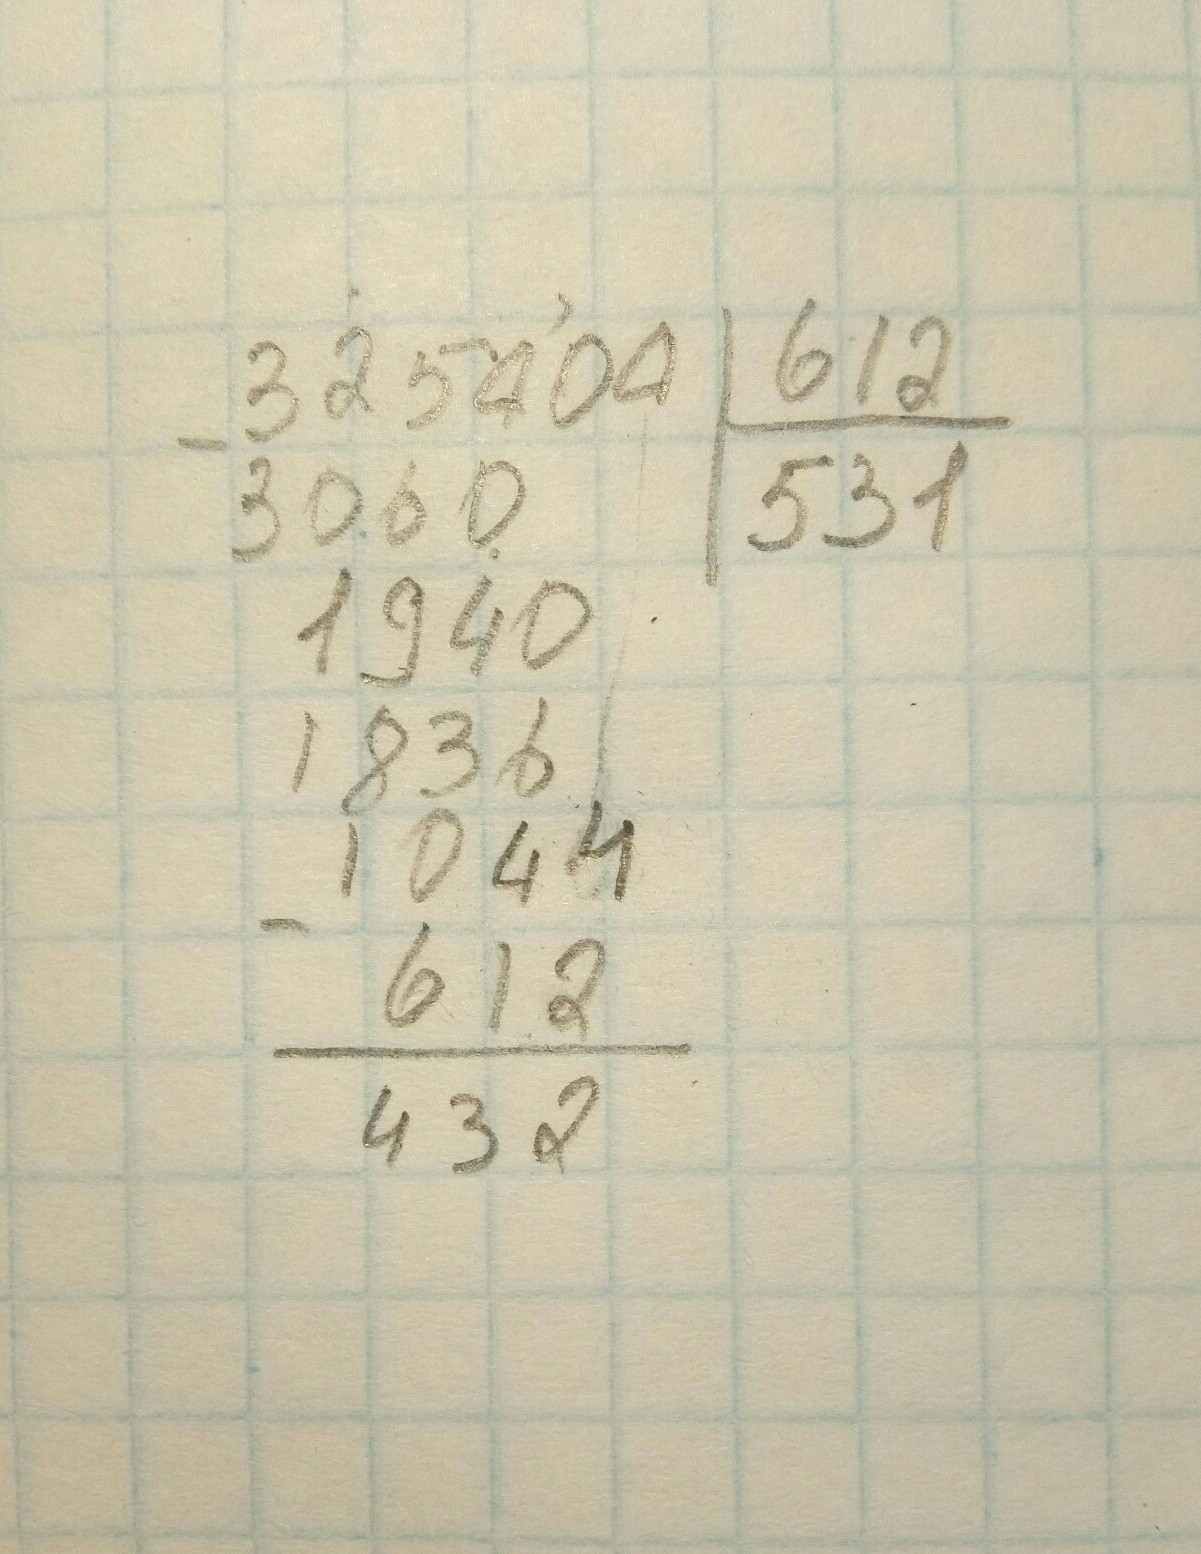 325404 | 612
- 3060 | 531
1940
1836
1044
- 612
432